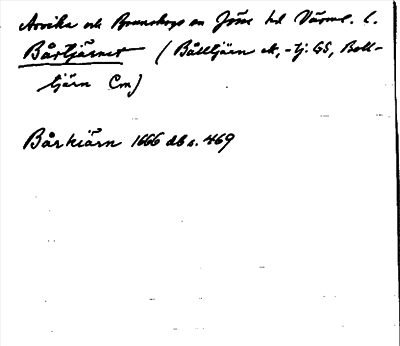 Arvika och Brunskogs sn Jösse hd Värml. l.
Bårtjärnet (Bålltjärn ek, -tj. GS, Boll-
tjärn Cm)
Bårkiärn 1666 db s. 469